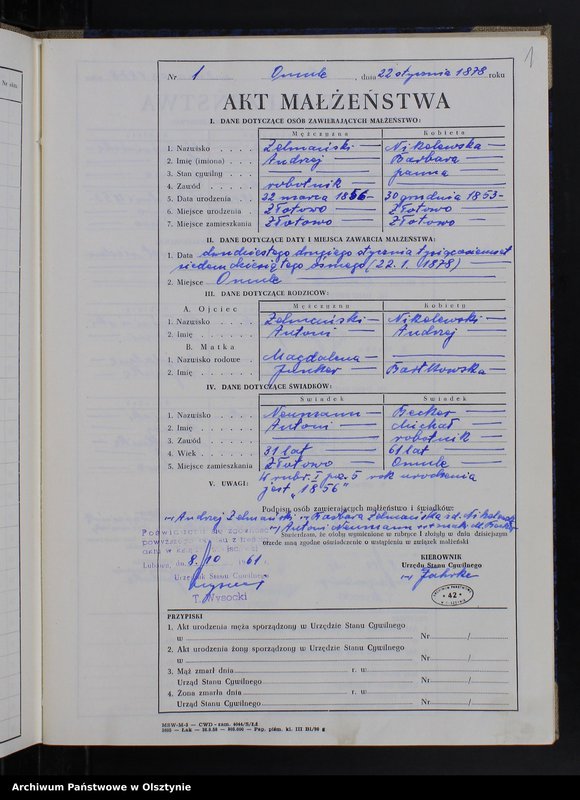 1
Nr 1 Omule, dnia 22 stycznia 1878 roku
AKT MAŁŻEŃSTWA
I. DANE DOTYCZĄCE OSÓB ZAWIERAJĄCYCH MAŁŻEŃSTWO:
Mężczyzna Kobieta
1. Nazwisko Zelmański Nikolewska
2. Imię (imiona) Andrzej Barbara
3. Stan cywilny — panna
4. Zawód robotnik —
5. Data urodzenia 22 marca 1856 30 grudnia 1853
6. Miejsce urodzenia Złotowo Złotowo
7. Miejsce zamieszkania Złotowo Złotowo
II. DANE DOTYCZĄCE DATY I MIEJSCA ZAWARCIA MAŁŻEŃSTWA:
1. Data dwudziestego drugiego stycznia tysiąc osiemset
siedemdziesiątego ósmego (22.1.1878)
2. Miejsce Omule
III. DANE DOTYCZĄCE RODZICÓW:
Mężczyzny Kobiety
A. Ojciec
1. Nazwisko Zelmański Nikolewski
2. Imię Antoni Andrzej
B. Matka
1. Nazwisko rodowe Magdalena —
2. Imię Junker Bartkowska
IV. DANE DOTYCZĄCE ŚWIADKÓW:
Świadek Świadek
1. Nazwisko Neumann Becker
2. Imię Antoni Michał
3. Zawód — robotnik
4. Wiek 31 lat 61 lat
5. Miejsce zamieszkania Złotowo Omule
V. UWAGI: W rubr. I poz. 5 rok urodzenia
jest „1856"
Podpisy osób zawierających małżeństwo i świadków:
Andrzej Zelmański Barbara Zelmańska zd. Nikolewska
Antoni Neumann
Stwierdzam, że osoby wymienione w rubryce I złożyły w dniu dzisiejszym
przede mną zgodne oświadczenie o wstąpieniu w związek małżeński
Lubawa, dn. 8/10 1961
Urzędnik Stanu Cywilnego
T. Wysocki
KIEROWNIK
Urzędu Stanu Cywilnego
Jahrke
42
PRZYPISKI
1. Akt urodzenia męża sporządzony w Urzędzie Stanu Cywilnego
w Nr /
2. Akt urodzenia żony sporządzony w Urzędzie Stanu Cywilnego
w Nr /
3. Mąż zmarł dnia r. w
Urząd Stanu Cywilnego Nr /
4. Żona zmarła dnia r. w
Urząd Stanu Cywilnego Nr /
Archiwum Państwowe w Olsztynie